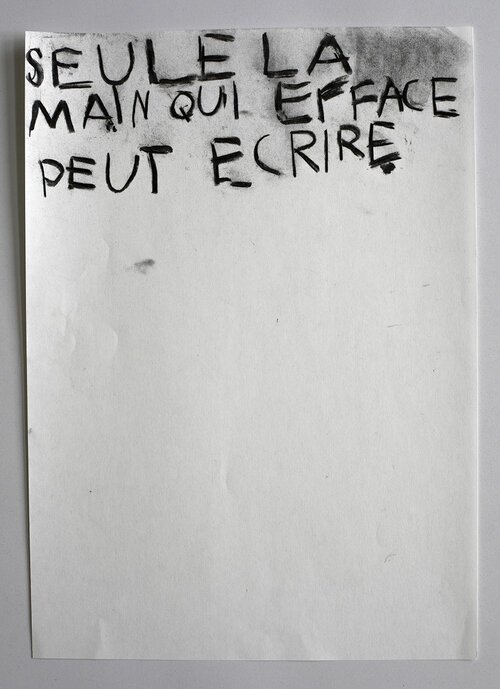 SEULE LA
MAIN QUI EFFACE
PEUT ECRIRE